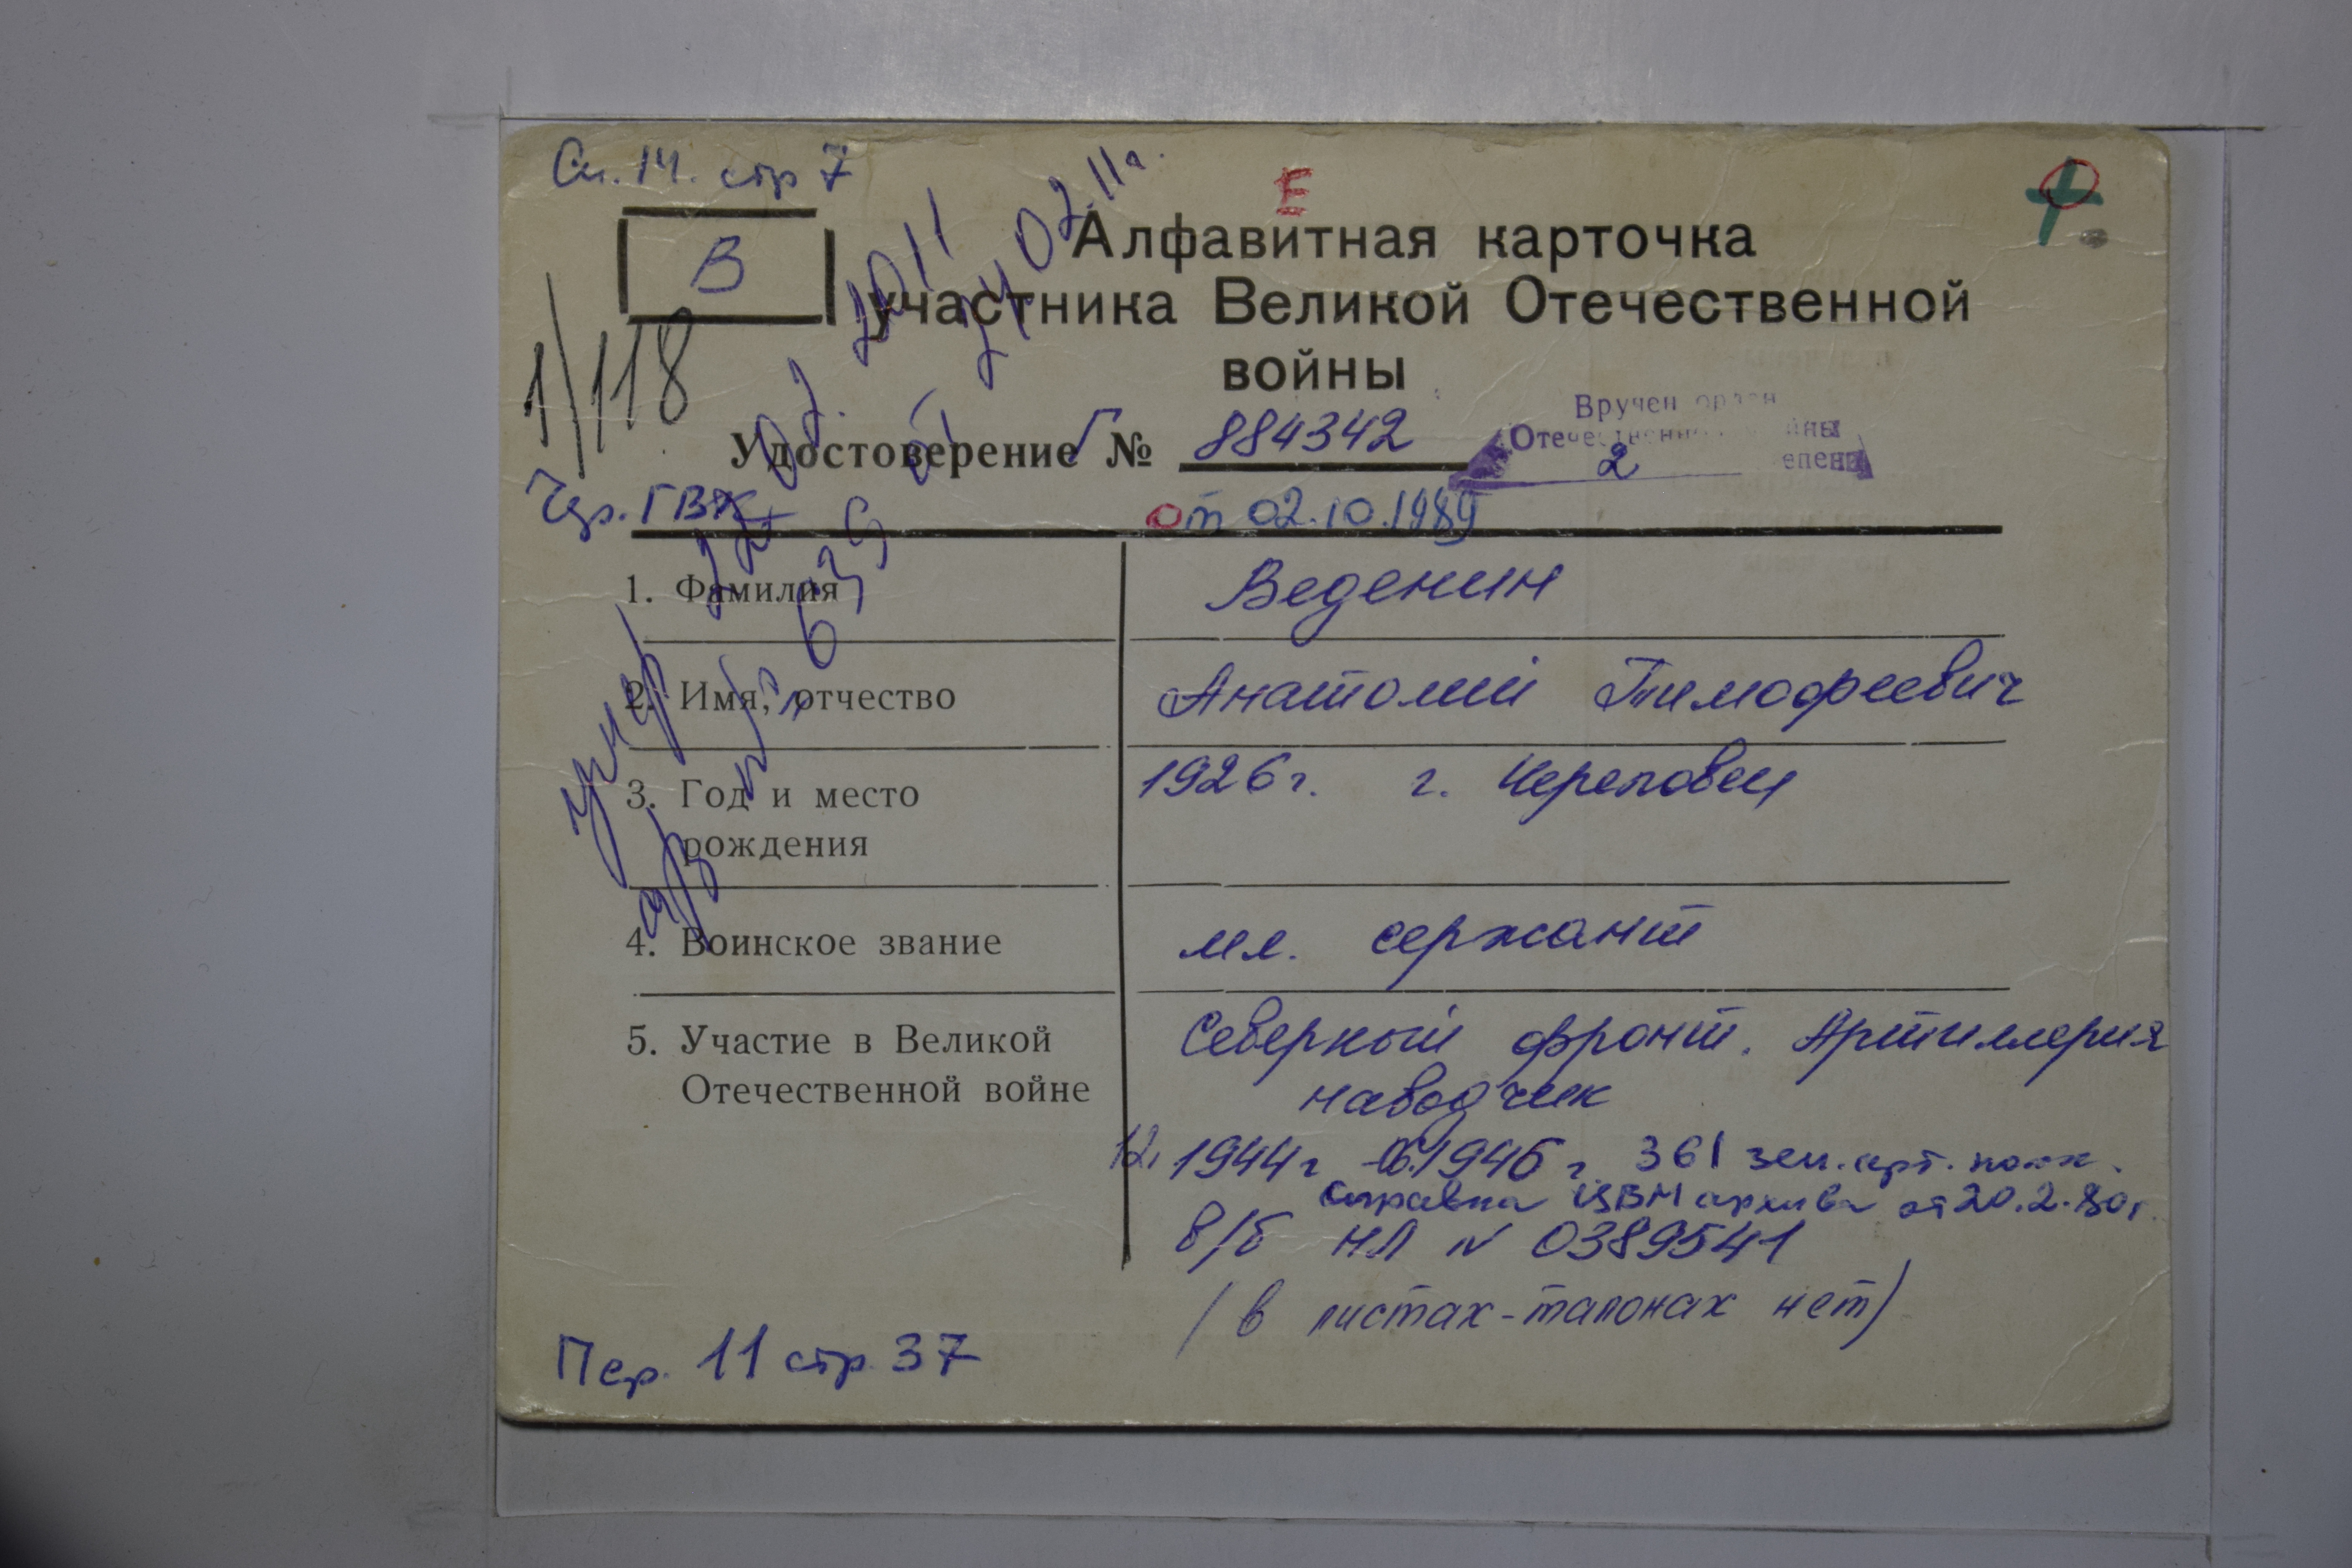 Сп. 14. стр 7
Е
В
Алфавитная карточка
участника Великой Отечественной
войны
1/118
Удостоверение Г № 884342
Вручен орден
Отечественной войны
2 степени
Удр. ГВК
от 02.10.1989
умер 22 02. 2011
а/з № 639 от 24 02 11г.
1. Фамилия Веденин
2. Имя, отчество Анатолий Тимофеевич
3. Год и место рождения 1926г. г. Череповец
4. Воинское звание мл. сержант
5. Участие в Великой Отечественной войне Северный фронт. Артиллерия
наводчик
12. 1944г - 1946г. 361 зен. арт. полк.
справка ЦВМ архива от 20.2.80г.
в/б НЛ № 0389541
(в листах-талонах нет)
Пер. 11 стр. 37